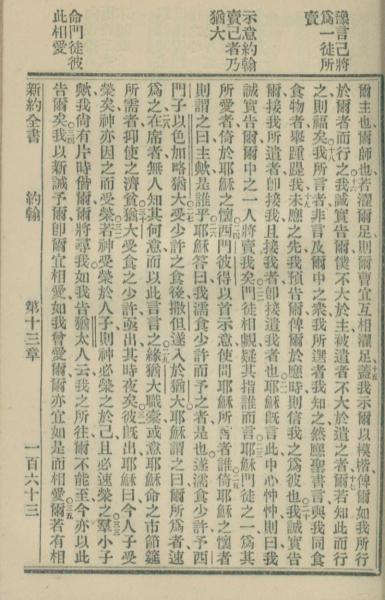 豫言己將
為一徒所
賣
示意約翰
賣己者乃
猶大
命門徒彼
此相愛
爾主也爾師也若濯爾足則爾曹宜互相濯足蓋我示爾以模楷俾爾如我所行
於爾者而行之我誠實告爾僕不大於主被遣者不大於遣之者爾若知此而行
之則福矣我所言者非言及爾中之衆我所選者我知之然應聖書言與我同食
食物者舉踵踶我未應之先我預告爾俾爾於應時則信我之為彼也我誠實告
爾接我所遣者卽接我且接我者卽接遣我者也耶穌既言此中心忡忡則曰我
誠實告爾爾中之一人將賣我矣門徒相覷疑其指誰而言耶穌門徒之一為其
所愛者倚於耶穌之懷西門彼得以首示意使問耶穌所言者誰倚耶穌之懷者
則謂之曰主歟是誰乎耶穌答曰我濡食少許而予之者是也遂濡食少許予西
門子以色加略猶大受少許之食後撒但遂入於猶大耶穌謂之曰爾所為者速
為之在席者無人知其何意而以此言言之緣猶大職橐或意耶穌命之市節筵
所需者抑使之濟貧猶大受食之少許亟出其時夜矣彼既出耶穌曰今人子受
榮矣神亦因之而受榮若神受榮於人子則神必榮之於己且必速榮之羣小子
歟我尚有片時偕爾爾將尋我如我昔告猶太人云我之所往爾不能至今亦以此
告爾矣我以新誡予爾卽爾宜相愛如我曾愛爾爾亦宜如是而相愛爾若有相
新約全書 約翰 第十三章 一百六十三